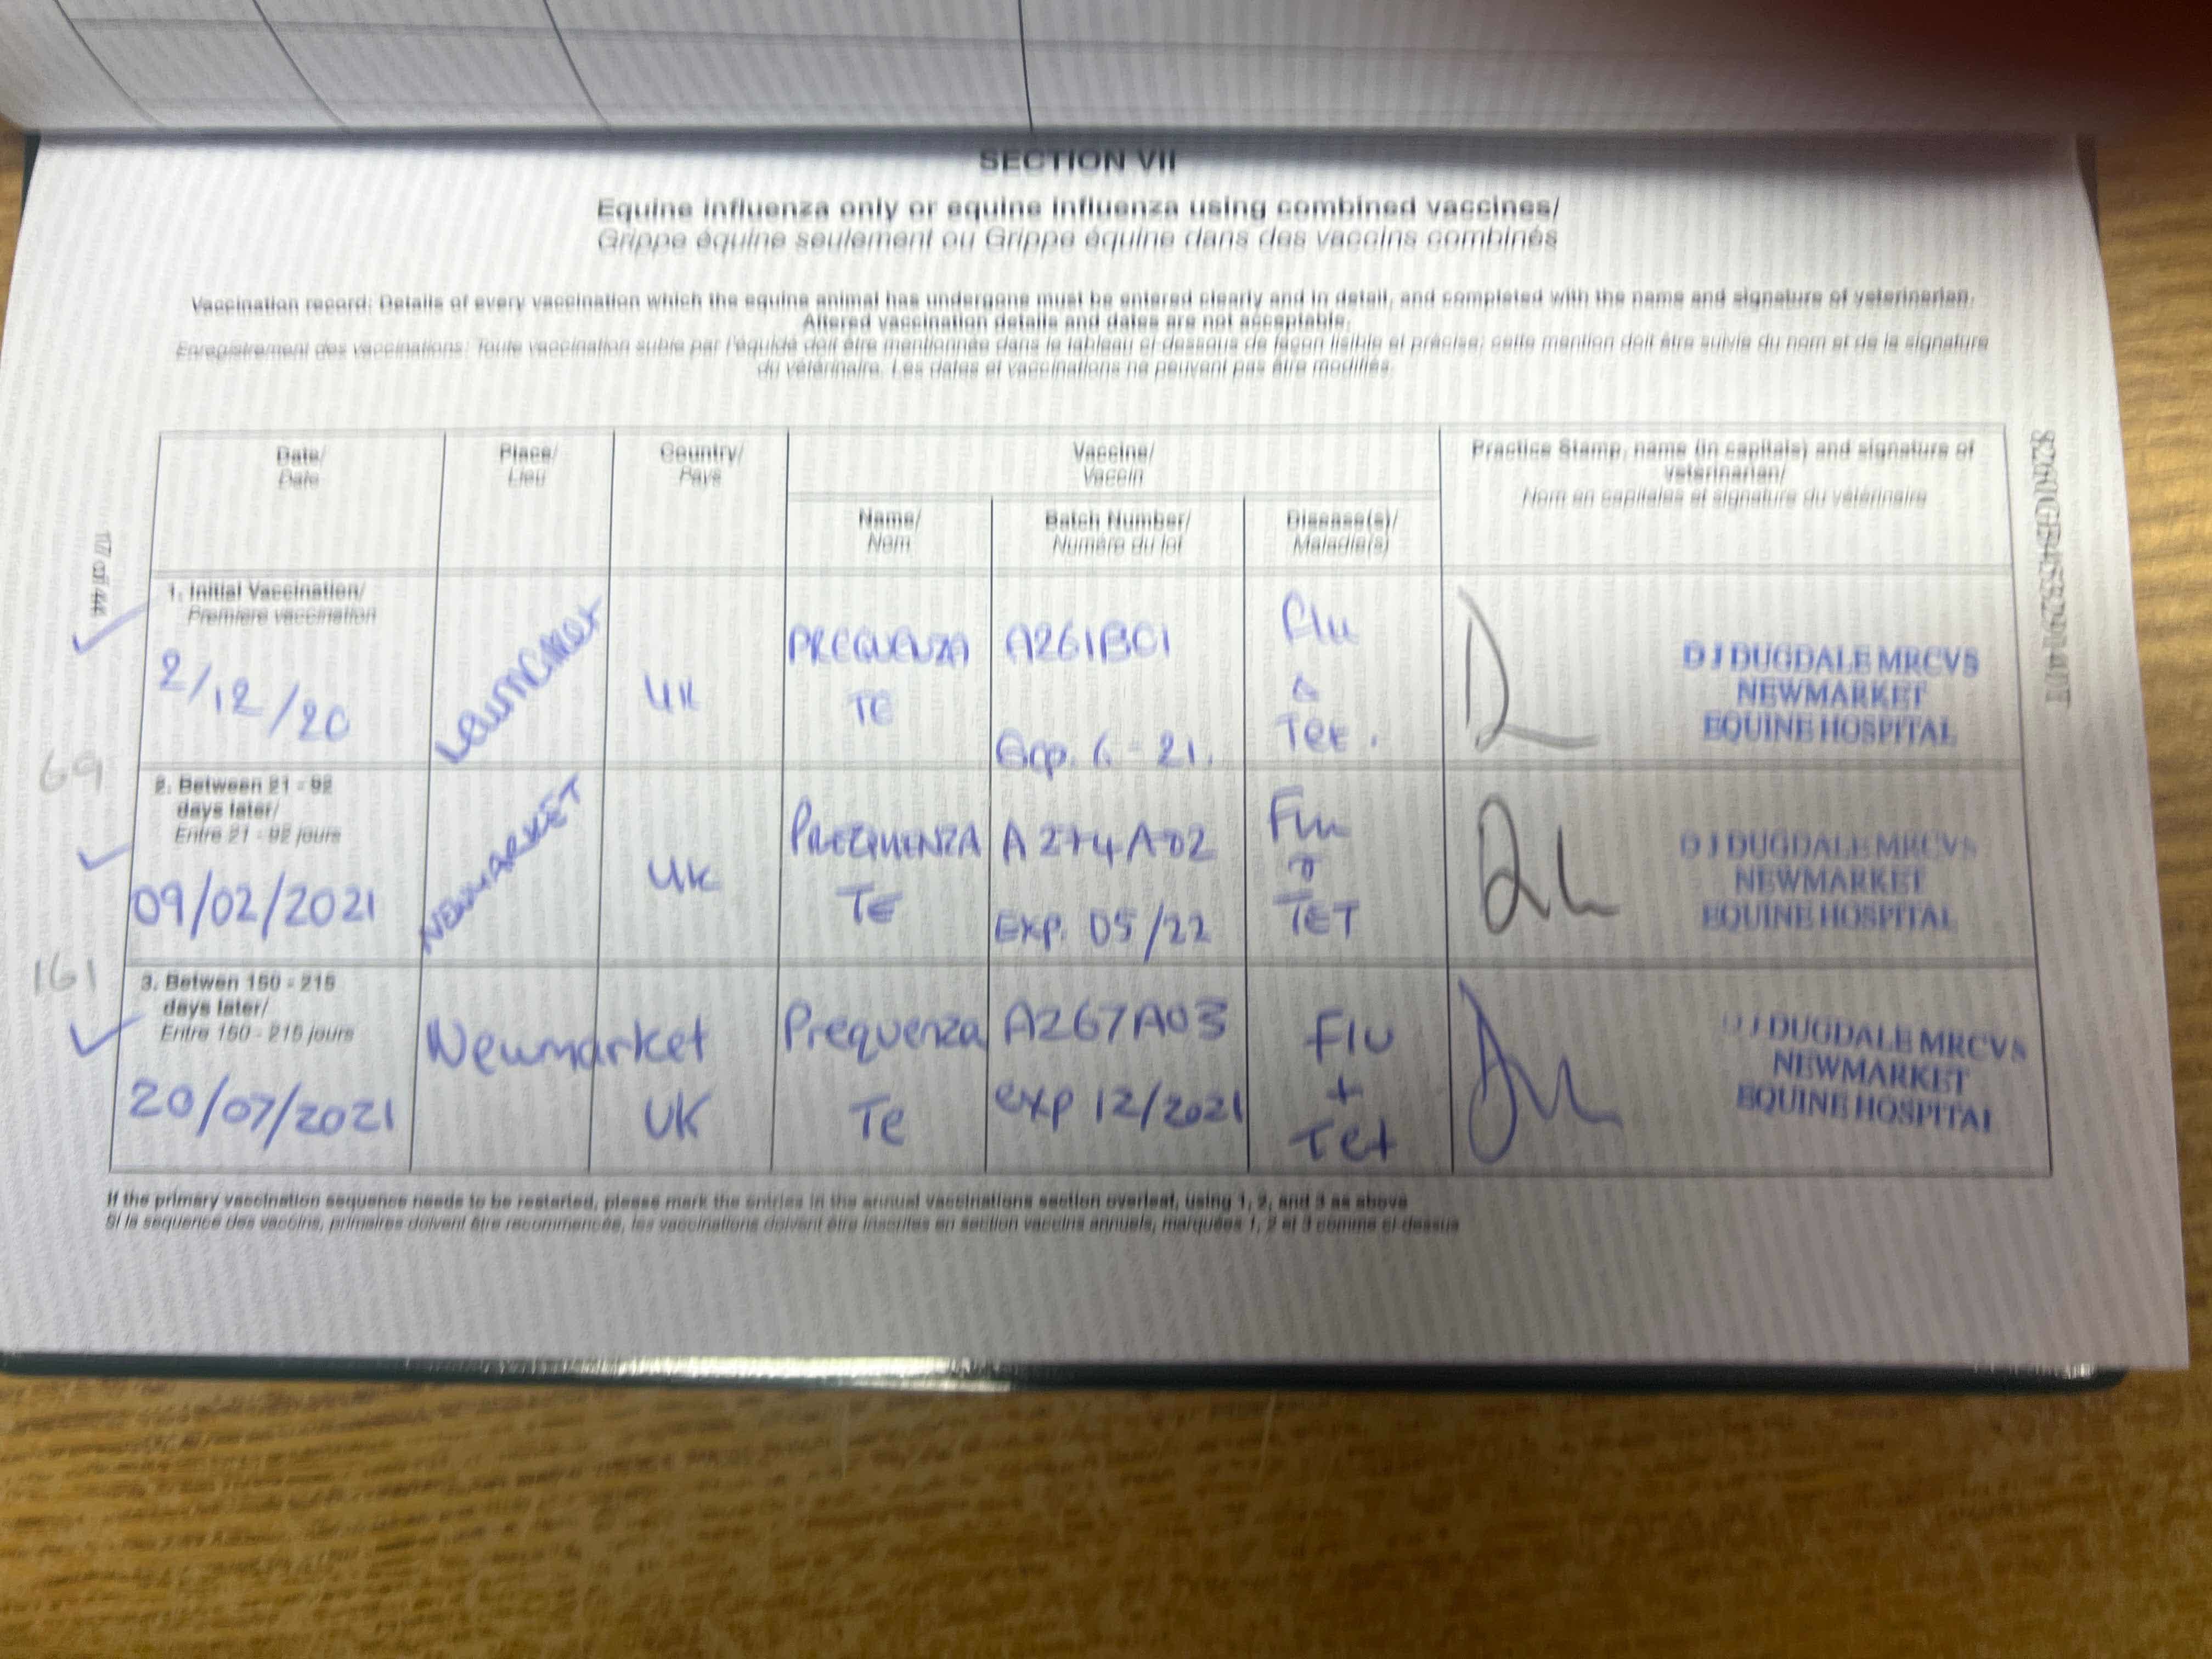 SECTION VII
Equine influenza only or equine influenza using combined vaccines/
Grippe équine seulement ou Grippe équine dans des vaccins combinés
Vaccination record: Details of every vaccination which the equine animal has undergone must be entered clearly and in detail, and completed with the name and signature of veterinarian.
Altered vaccination details and dates are not acceptable.
Enregistrement des vaccinations: Toute vaccination subie par l'équidé doit être mentionnée dans le tableau ci-dessous de façon lisible et précise; cette mention doit être suivie du nom et de la signature
du vétérinaire. Les dates et vaccinations ne peuvent pas être modifiés.
Date/
Date
Place/
Lieu
Country/
Pays
Vaccine/
Vaccin
Name/
Nom
Batch Number/
Numéro du lot
Disease(s)/
Maladie(s)
Practice Stamp, name (in capitals) and signature of
veterinarian/
Nom en capitales et signature du vétérinaire
17 of 44
1. Initial Vaccination/
Première vaccination
2/12/20
UK
PREQUENZA
TE
A261BC1
Exp. 6 - 21.
Flu
&
Tet.
D J DUGDALE MRCVS
NEWMARKET
EQUINE HOSPITAL
69
2. Between 21 - 92
days later/
Entre 21 - 92 jours
09/02/2021
NEWMARKET
UK
PREQUENZA
TE
A274A02
Exp. 05/22
Flu
+
TET
D J DUGDALE MRCVS
NEWMARKET
EQUINE HOSPITAL
161
3. Betwen 150 - 215
days later/
Entre 150 - 215 jours
20/07/2021
Newmarket
UK
Prequenza
Te
A267A03
exp 12/2021
Flu
+
Tet
D J DUGDALE MRCVS
NEWMARKET
EQUINE HOSPITAL
If the primary vaccination sequence needs to be restarted, please mark the entries in the annual vaccinations section overleaf, using 1, 2, and 3 as above
Si la séquence des vaccins, primaires doivent être recommencés, les vaccinations doivent être inscrites en section vaccins annuels, marquées 1, 2 et 3 comme ci-dessus